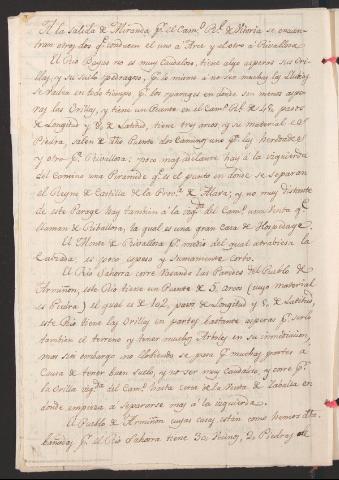 A la salida de Miranda pr. el Camo. Rl. de Vitoria se encuen-
tran otros dos qe. conducen el uno a Arce y el otro a Rivallosa.
El Rio Bayas no es muy Caudaloso, tiene algo asperas sus Ori-
llas, y su suelo pedragoso, pr. lo mismo a no ser muchas las lluvias
se vadea en todo tiempo pr. los parages en donde son menos aspe-
ras las Orillas, y tiene un Puente en el Camo. Rl. de 48, pasos
de Longitud y 8, de Latitud, tiene tres arcos, y su material es
Piedra, salen de dho Puente dos Caminos uno pa. las herberas
y otro pa. Rivallosa; poco mas adelante hay á la izquierda
del Camino una Piramide qe. es el punto en donde se separan
el Reyno de Castilla de la Prova. de Alava; y no muy distante
de este Parage hay tambien á la izqa. del Camo. una Venta qe.
llaman de Riballosa, la qual es una gran Casa de Hospedage.
El Monte de Rivallosa pr. medio del qual atrabiesa la
Calzada, es poco espeso y sumamente corto.
El Rio Sahorra corre vesando las Paredes del Pueblo de
Armiñon, este Rio tiene un Puente de 5, arcos (cuyo material
es Piedra) el qual es de 102, pasos de Longitud y 8, de Latitud,
este Rio tiene las Orillas en partes bastante asperas pr. serlo
tambien el terreno y tener muchos Arboles en su inmediacion,
mas sin embargo no lloviendo se pasa pr. muchas partes a
causa de tener buen suelo, y no ser muy Caudaloso, y corre pr.
la Orilla izqda. del Camo. hasta cerca de la Venta de Zabalia en
donde empieza a separarse mas á la izquierda.
El Pueblo de Armiñon cuyas casas están como hemos dho.
bañadas pr. el Rio Sahorra tiene 30, Vecinos, 2, Piedras de